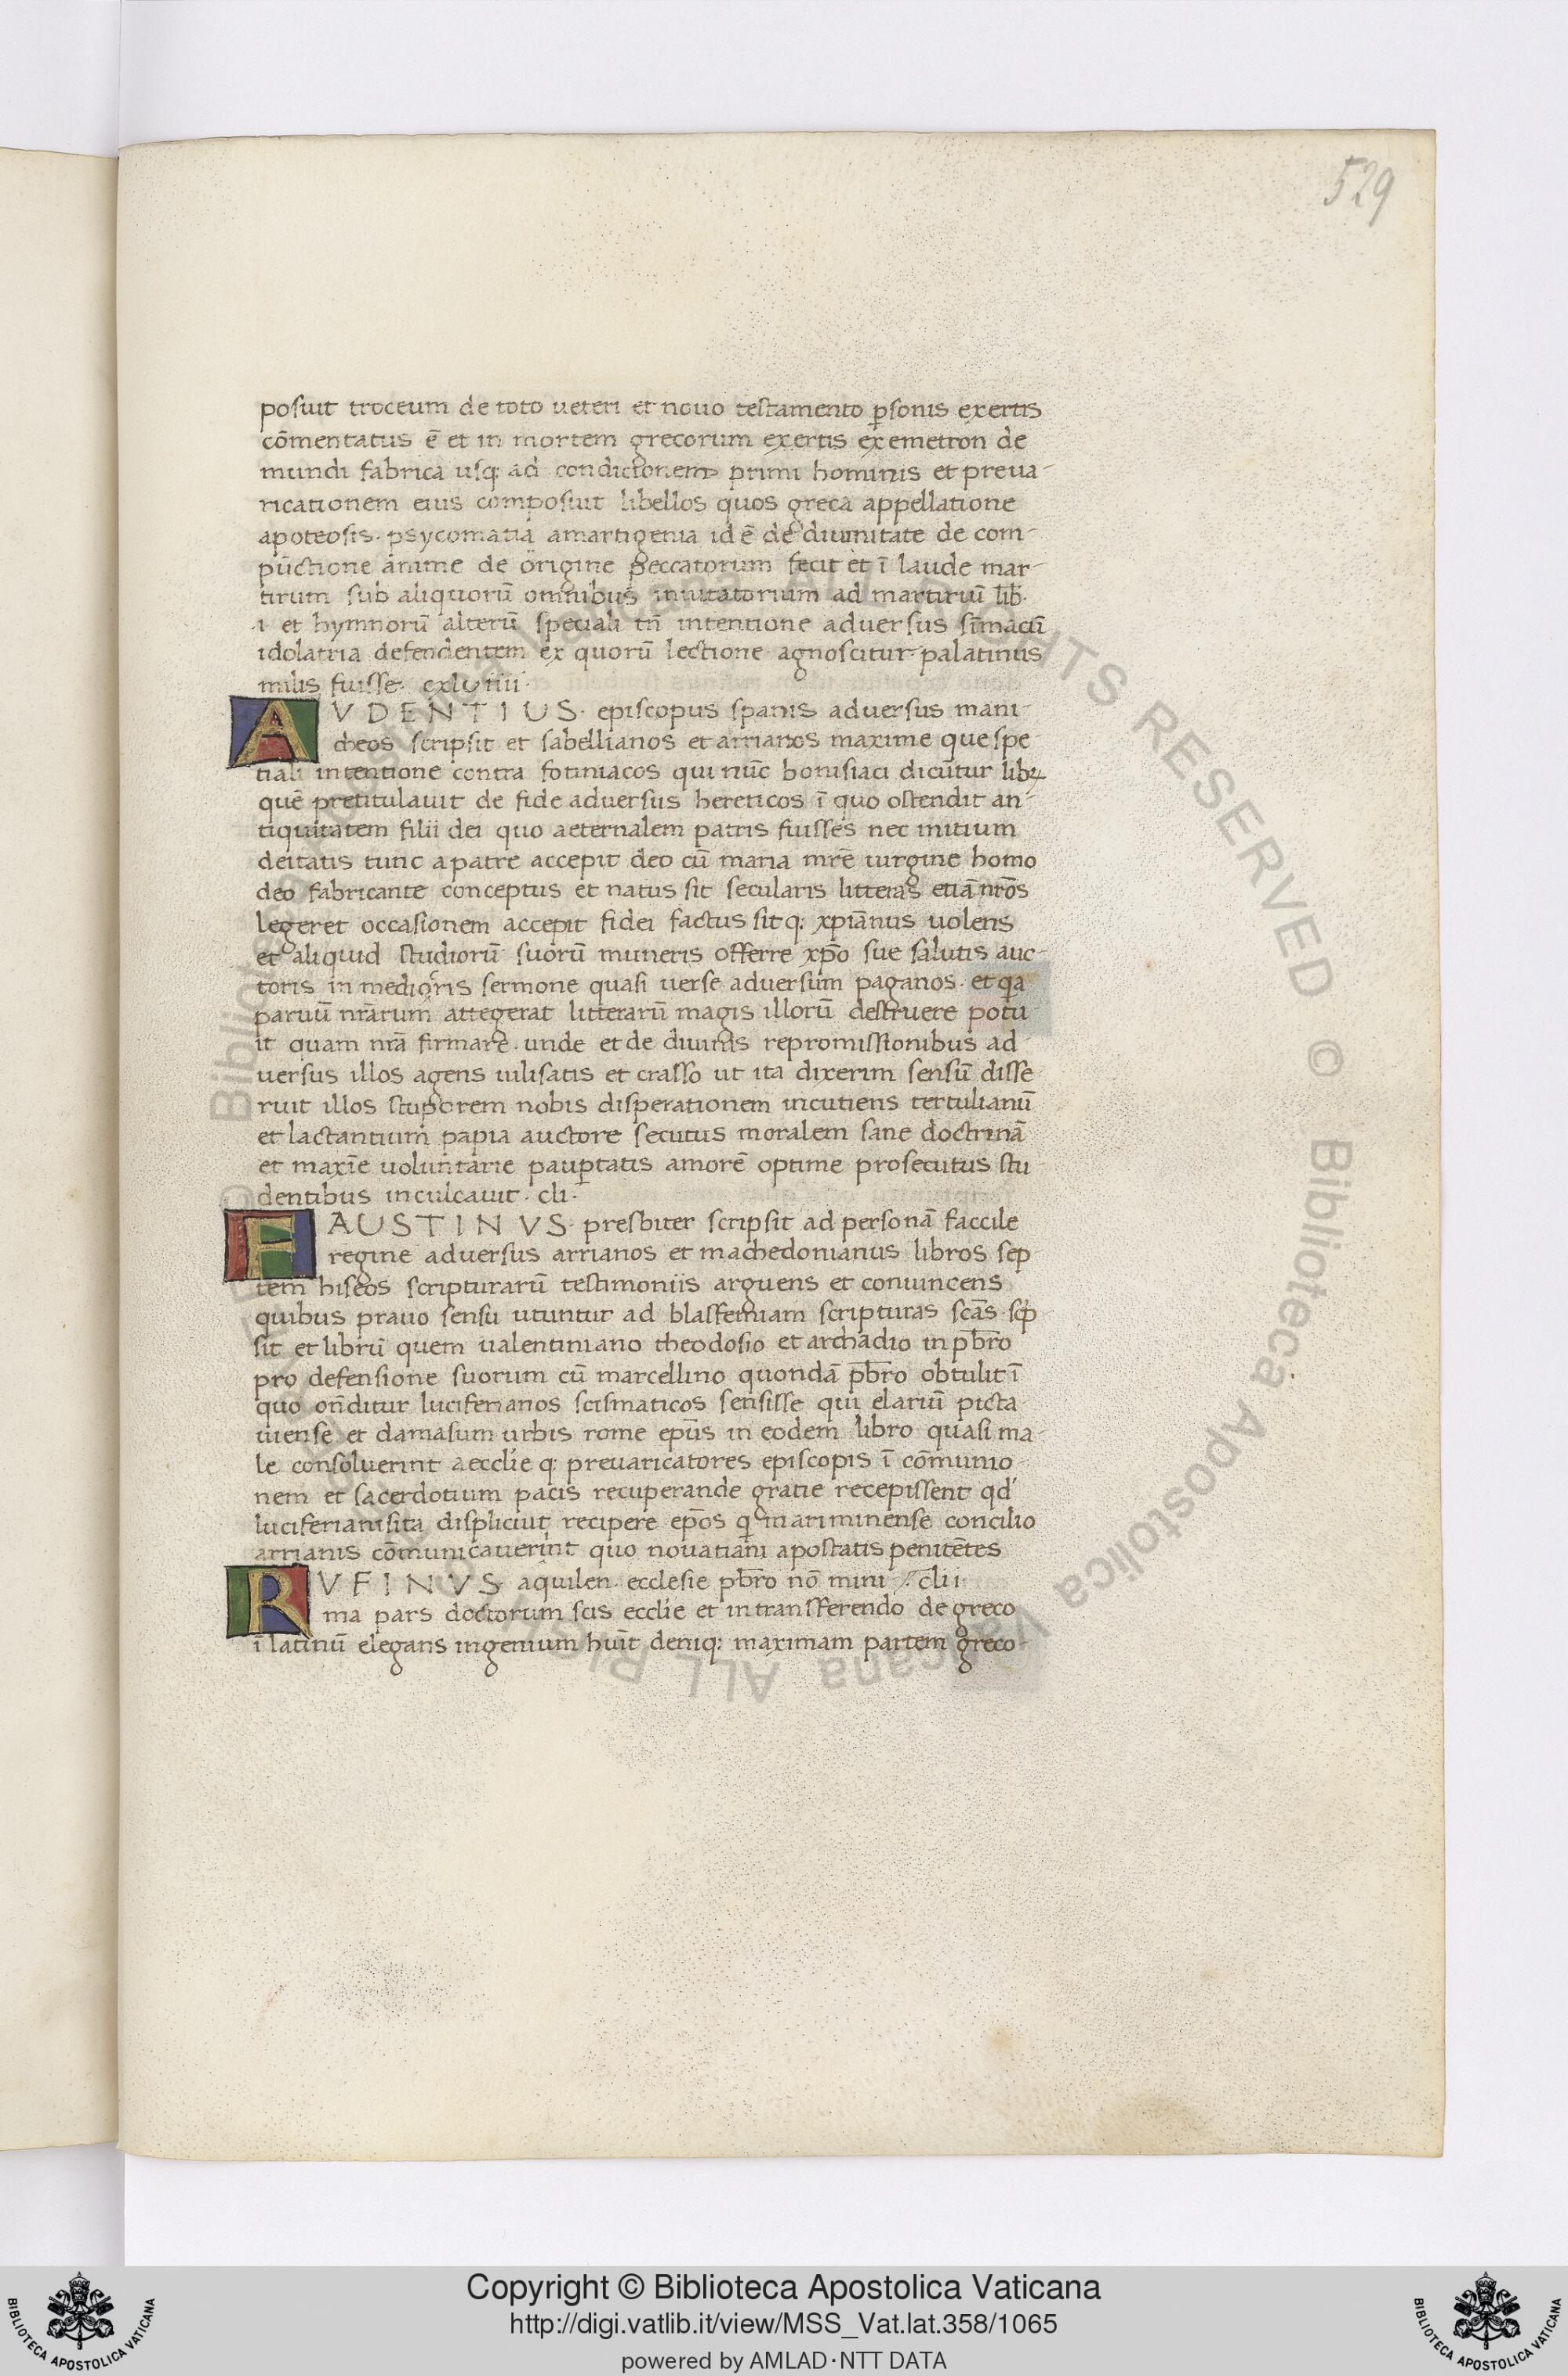 529
posuit troceum de toto ueteri et nouo testamento p̱sonis exertis
cõmentatus ẽ et in mortem grecorum exertis exemetron de
mundi fabrica usq; ad condictonem primi hominis et preua-
ricationem eius composuit libellos quos greca appellatione
apoteosis. psycomatia amartigenia id ẽ de diuinitate de com-
pũctione anime de origine peccatorum fecit et ĩ laude mar-
tirum sub aliquorũ omnibus inuitatorium ad martiriũ lib̄.
.i et hymnorũ alterũ speciali tñ intentione aduersus sĩmacũ
idolatria defendentem ex quorũ lectione agnoscitur palatinus
milis fuisse. cxluiiii.
AVDENTIUS. episcopus spanis aduersus mani-
cheos scripsit et sabellianos et arrianos maxime que spe
tiali intentione contra fotiniacos qui nũc bonisiaci dicũtur libꝝ
quẽ pretitulauit de fide aduersus hereticos ĩ quo ostendit an-
tiquitatem filii dei quo aeternalem patris fuisses nec initium
deitatis tunc a patre accepit deo cũ maria mr̃e uirgine homo
deo fabricante conceptus et natus sit secularis litteras etiã nr̃os
legeret occasionem accepit fidei factus sit q; xp̃ianus uolens
et aliquid studiorũ suorũ muneris offerre xp̃o sue salutis auc-
toris in medioris sermone quasi uerse aduersum paganos. et qa
paruũ nr̃arum attegerat litterarũ magis illorũ destruere potu
it quam nr̃a firmare. unde et de diuinis repromissionibus ad
uersus illos agens uilisatis et crasso ut ita dixerim sensũ disse
ruit illos stuporem nobis disperationem incutiens tertulianũ
et lactantium papia auctore secutus moralem sane doctrinã
et maxĩe uoluntarie paup̱tatis amorẽ optime prosecutus stu
dentibus inculcauit. cli.
FAUSTINVS. presbiter scripsit ad personã faccile
regine aduersus arrianos et machedonianus libros sep
tem hiseos scripturarũ testimoniis arguens et conuincens
quibus prauo sensu utuntur ad blasfemiam scripturas scãs. scp
sit et librũ quem ualentiniano theodosio et archadio inpb̄ro
pro defensione suorum cũ marcellino quondã pb̄ro obtulit ĩ
quo oñditur luciferianos scismaticos sensisse qui elariũ picta
uiense et damasum urbis rome ep̃us in eodem libro quasi ma-
le consoluerint aecclie q; preuaricatores episcopis ĩ cõmunio-
nem et sacerdotium pacis recuperande gratie recepissent qd́
luciferianisita displiciut recipere ep̃os q inariminense concilio
arrianis cõmunicauerint quo nouatiani apostatis penitẽtes
RVFINVS. aquilen. ecclesie pb̄ro nõ mini / .clii
ma pars doctorum scis ecclie et in transferendo de greco
ĩ latinũ elegans ingenium huit deniq; maximam partem greco-
Copyright © Biblioteca Apostolica Vaticana
http://digi.vatlib.it/view/MSS_Vat.lat.358/1065
powered by AMLAD·NTT DATA
BIBLIOTECA APOSTOLICA VATICANA
BIBLIOTECA APOSTOLICA VATICANA